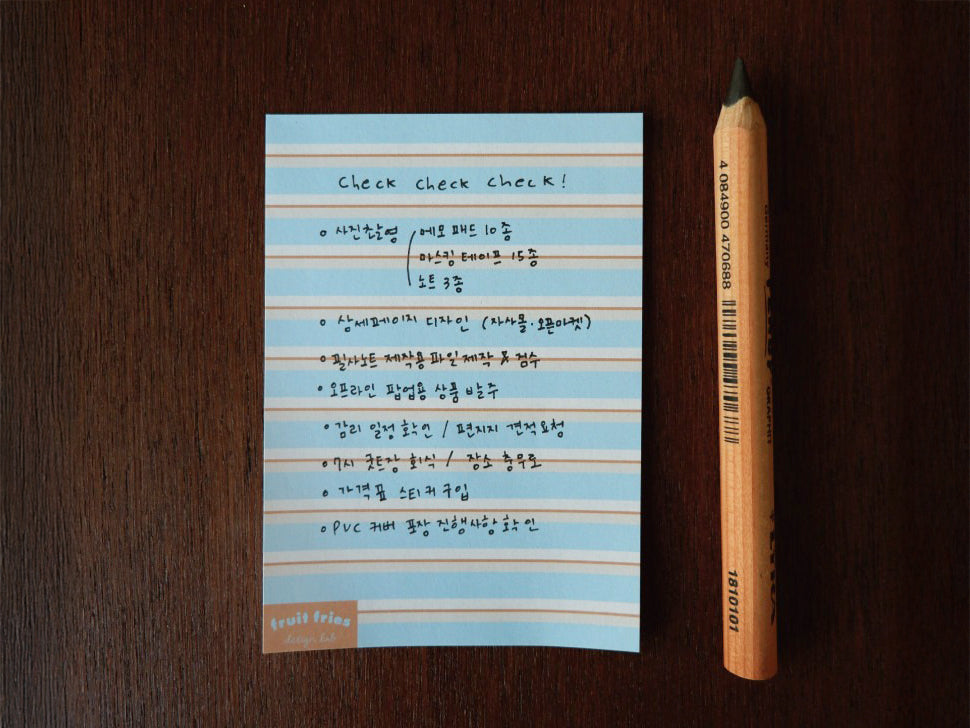 Check Check Check!
○ 사진촬영 ( 메모 패드 10종
마스킹 테이프 15종
노트 3종
○ 상세페이지 디자인 (자사몰·오픈마켓)
○ 필사노트 제작용 파일 제작 & 검수
○ 오프라인 팝업용 상품 발주
○ 감리 일정 확인 / 편지지 견적요청
○ 7시 굿트장 회식 / 장소 충무로
○ 가격표 스티커 구입
○ PVC 커버 포장 진행사항 확인
fruit fries
design lab
4 084900 470688
Germany
GRAPHIT
1810101